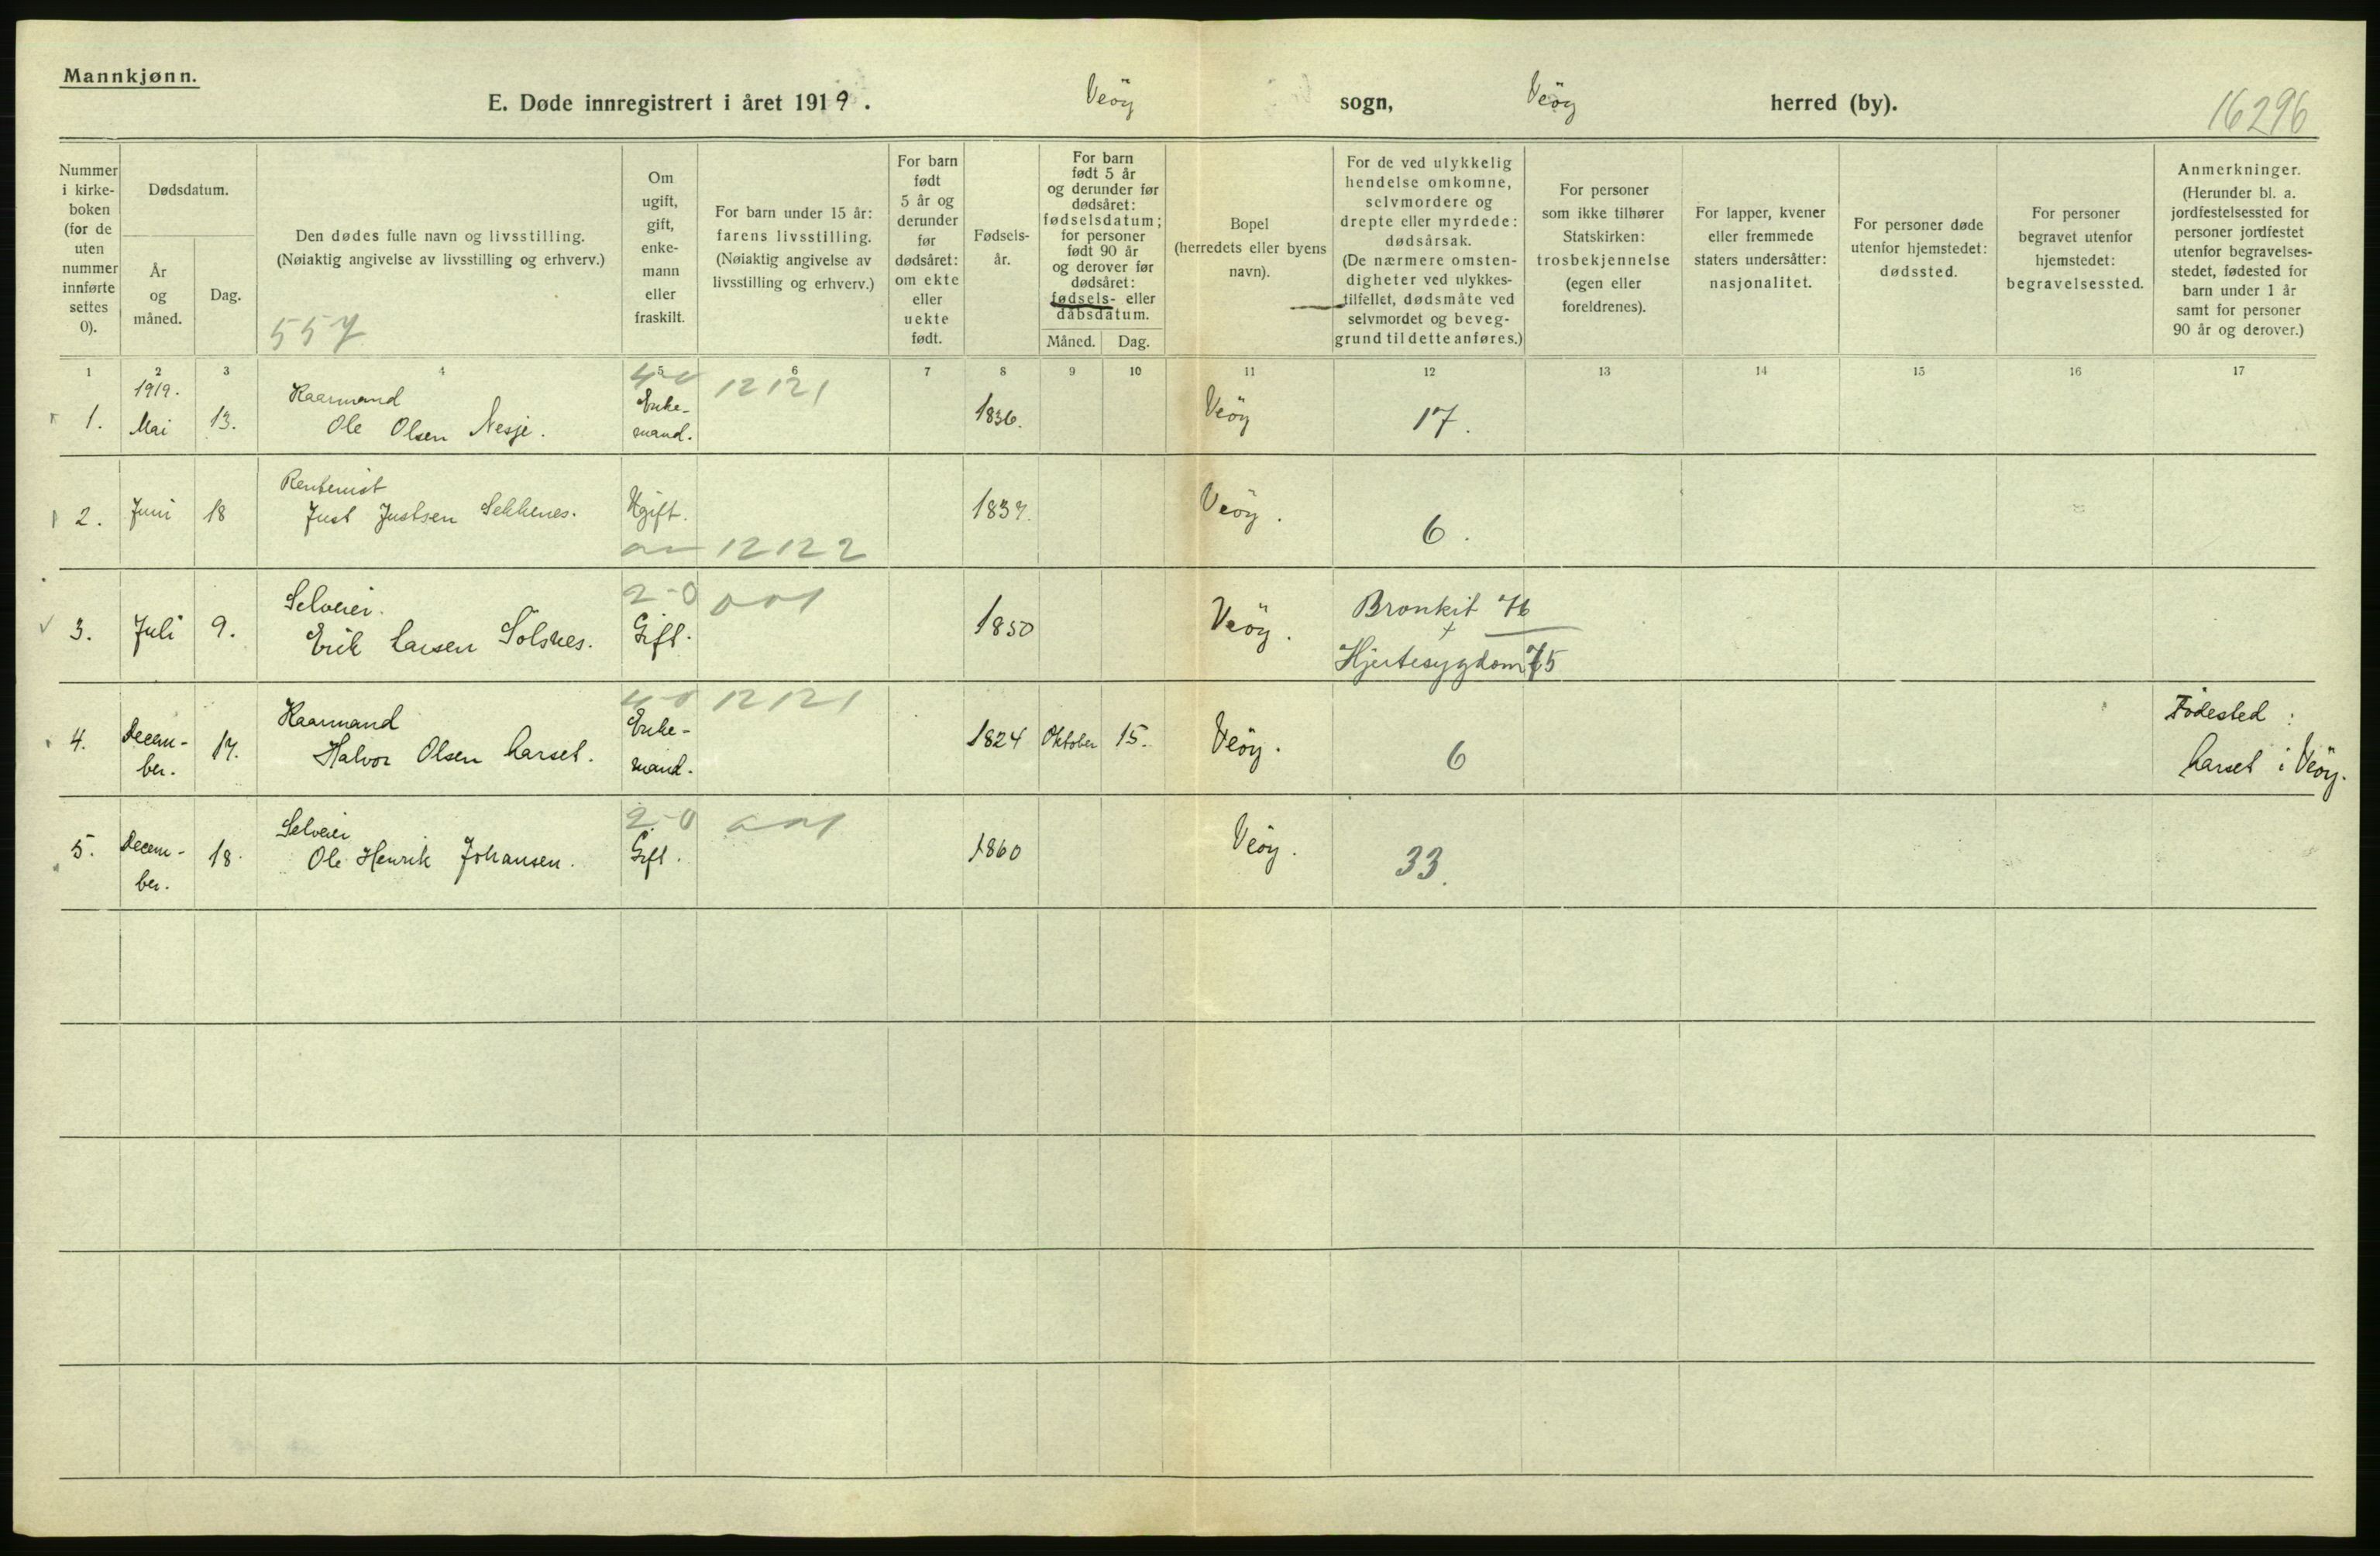 Mannkjønn.
E. Døde innregistrert i året 1919. Veöy sogn, Veöy herred (by).
16296
Nummer i kirke-boken (for de uten nummer innførte settes 0).
Dødsdatum.
År og måned.
Dag.
Den dødes fulle navn og livsstilling.
(Nøiaktig angivelse av livsstilling og erhverv.)
557
Om ugift, gift, enke-mann eller fraskilt.
For barn under 15 år: farens livsstilling.
(Nøiaktig angivelse av livsstilling og erhverv.)
For barn født 5 år og derunder før dødsåret: om ekte eller uekte født.
Fødsels-år.
For barn født 5 år og derunder før dødsåret: fødselsdatum; for personer født 90 år og derover før dødsåret: fødsels- eller dåbsdatum.
Måned. Dag.
Bopel (herredets eller byens navn).
For de ved ulykkelig hendelse omkomne, selvmordere og drepte eller myrdede: dødsårsak.
(De nærmere omsten-digheter ved ulykkes-tilfellet, dødsmåte ved selvmordet og beveg-grund til dette anføres.)
For personer som ikke tilhører Statskirken: trosbekjennelse (egen eller foreldrenes).
For lapper, kvener eller fremmede staters undersåtter: nasjonalitet.
For personer døde utenfor hjemstedet: dødssted.
For personer begravet utenfor hjemstedet: begravelsessted.
Anmerkninger.
(Herunder bl. a. jordfestelsessted for personer jordfestet utenfor begravelses-stedet, fødested for barn under 1 år samt for personer 90 år og derover.)
1 2 3 4 5 6 7 8 9 10 11 12 13 14 15 16 17
1. 1919. Mai 13. Kaarmand Ole Olsen Nesje. Enke-mand. 12121 1836. Veöy 17.
2. Juni 18 Rentenist Just Justsen Sekkenes. Ugift. 12122 1837. Veöy. 6.
3. Juli 9. Selveier. Erik Larsen Sölsnes. 2-0 Gift. 001 1850 Veöy. Bronkit 76 + Hjertesygdom 75
4. Decem-ber. 17. Kaarmand Halvor Olsen Larset. 4-0 Enke-mand. 12121 1824 Oktober 15. Veöy. 6 Födested: Larset i Veöy.
5. Decem-ber. 18. Selveier Ole Henrik Johansen. 2-0 Gift. 001 1860 Veöy. 33.